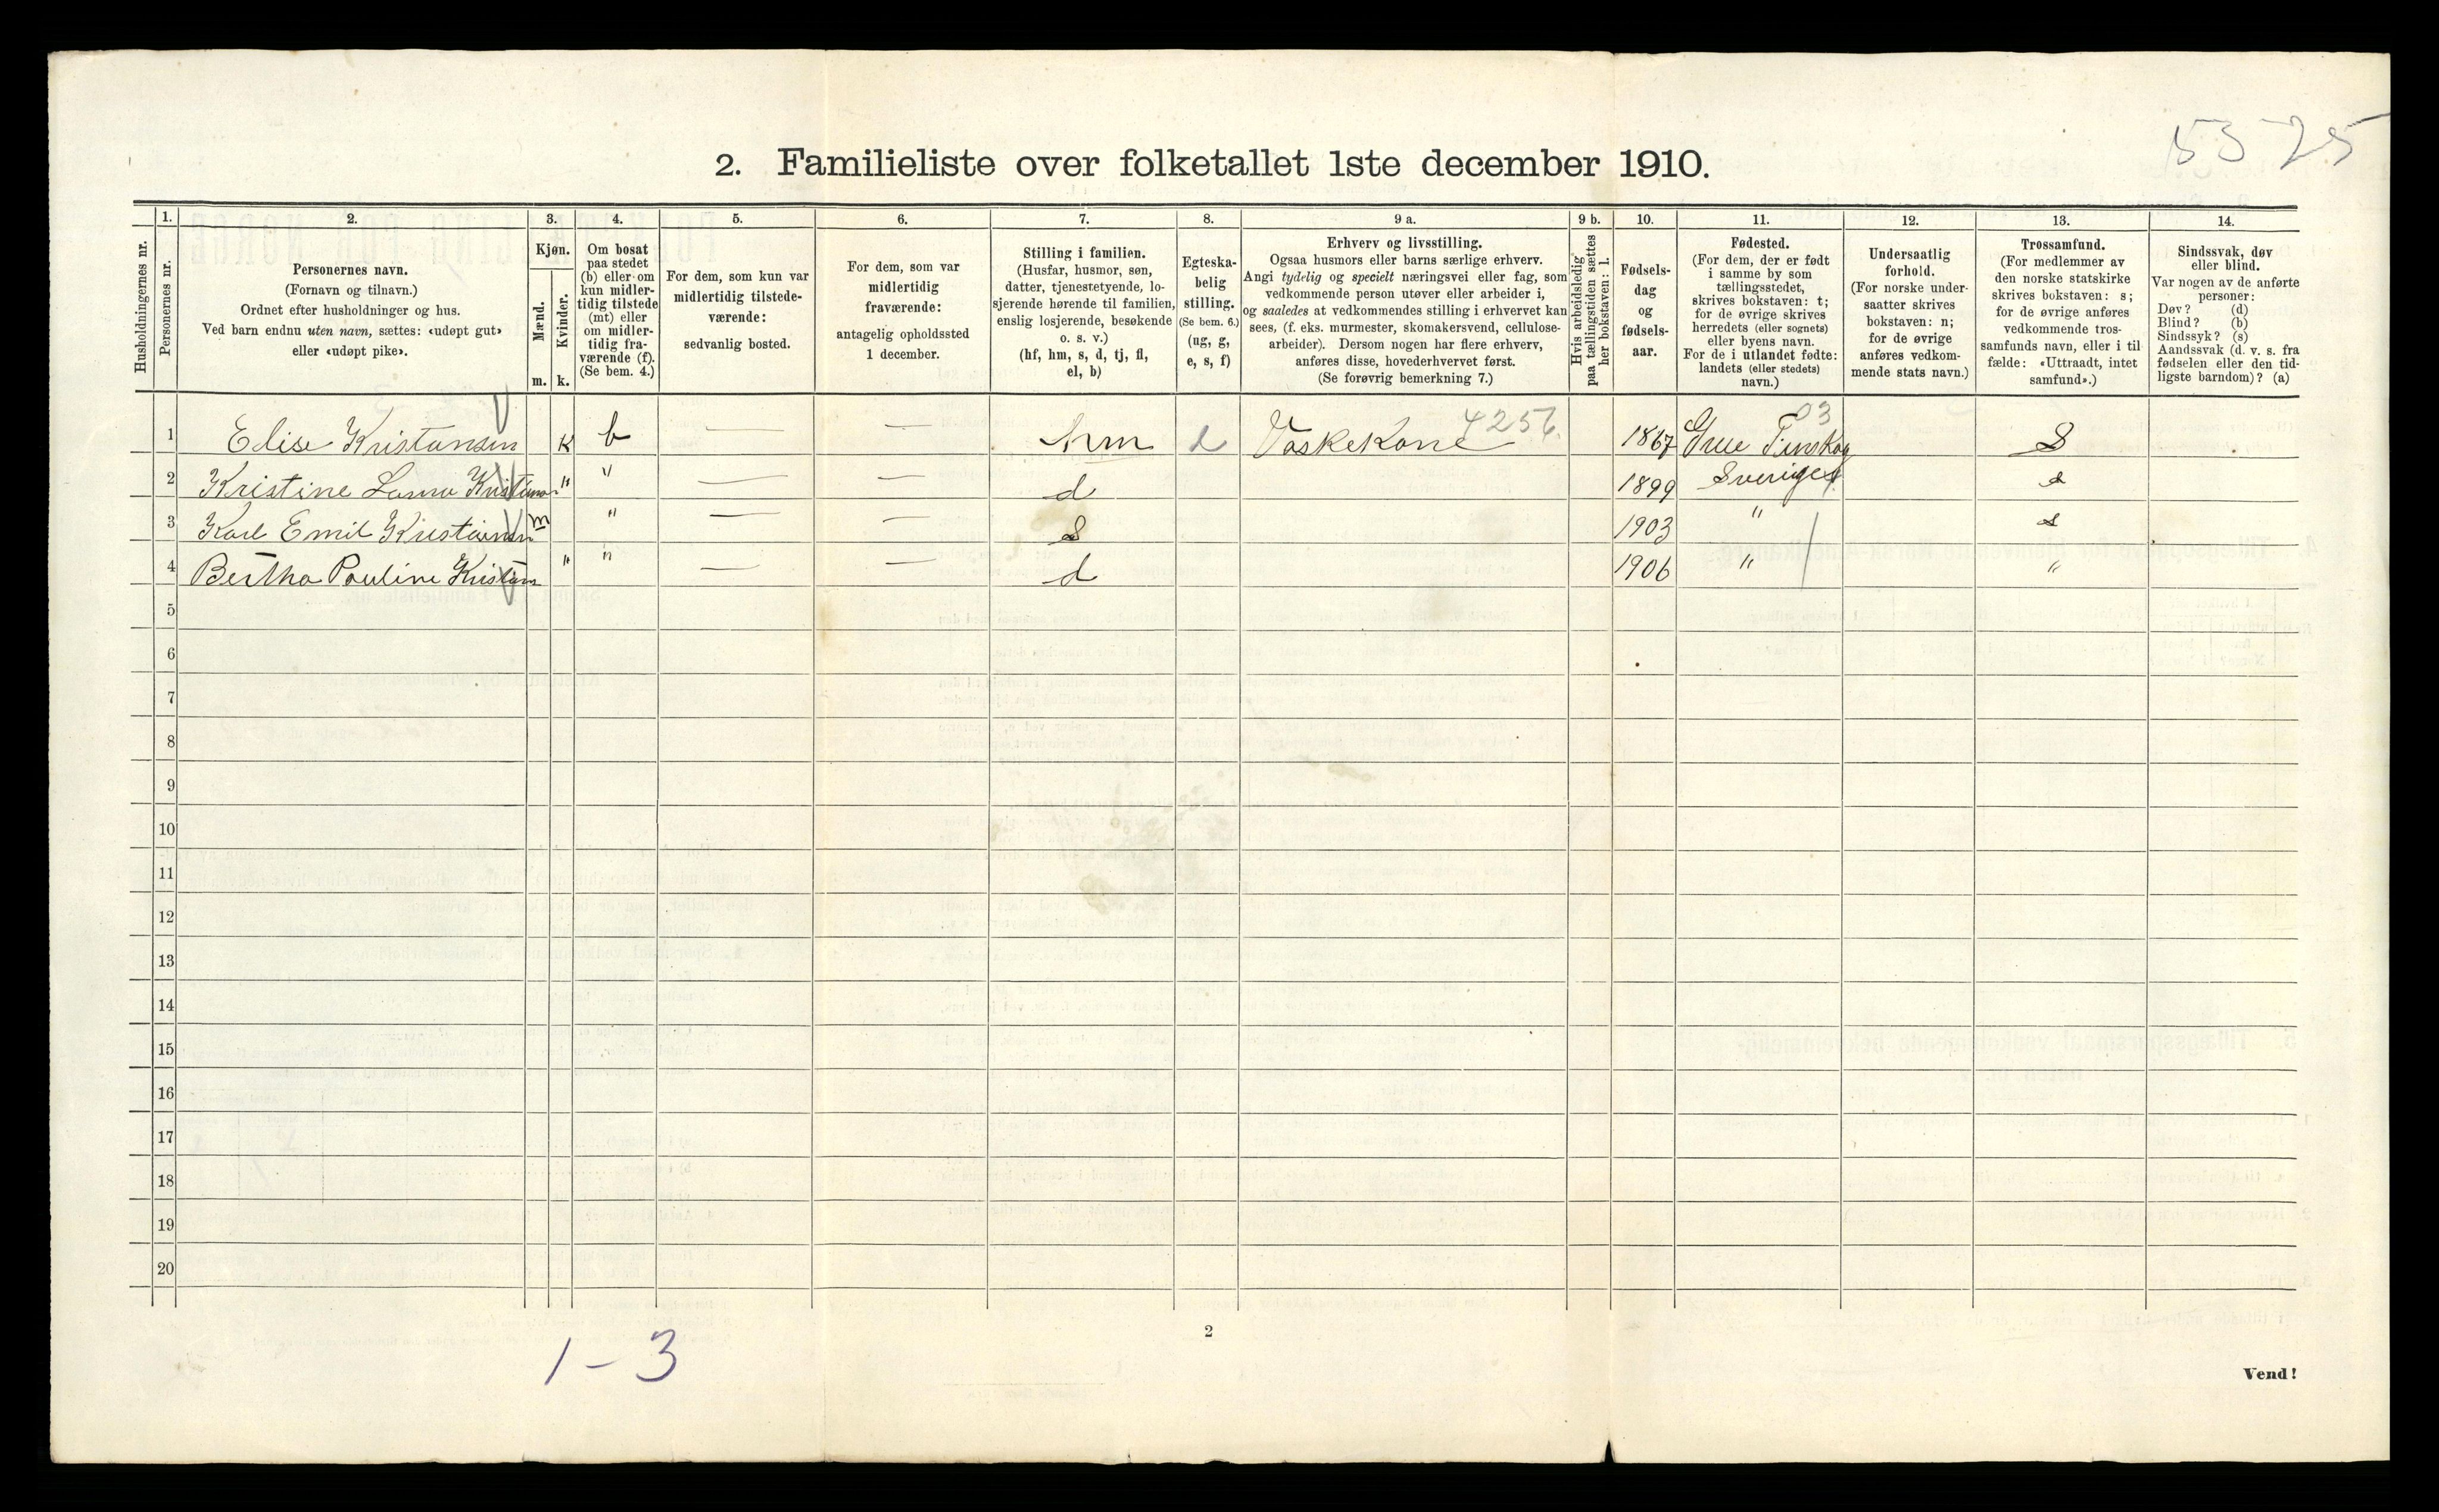 53 25
2. Familieliste over folketallet 1ste december 1910.
Husholdningernes nr.
1. Personernes nr.
2. Personernes navn. (Fornavn og tilnavn.) Ordnet efter husholdninger og hus. Ved barn endnu uten navn, sættes: «udøpt gut» eller «udøpt pike».
3. Kjøn. Mænd. m. Kvinder. k.
4. Om bosat paa stedet (b) eller om kun midlertidig tilstede (mt) eller om midlertidig fraværende (f). (Se bem. 4.)
5. For dem, som kun var midlertidig tilstedeværende: sedvanlig bosted.
6. For dem, som var midlertidig fraværende: antagelig opholdssted 1 december.
7. Stilling i familien. (Husfar, husmor, søn, datter, tjenestetyende, losjerende hørende til familien, enslig losjerende, besøkende o. s. v.) (hf, hm, s, d, tj, fl, el, b)
8. Egteskabelig stilling. (Se bem. 6.) (ug, g, e, s, f)
9 a. Erhverv og livsstilling. Ogsaa husmors eller barns særlige erhverv. Angi tydelig og specielt næringsvei eller fag, som vedkommende person utøver eller arbeider i, og saaledes at vedkommendes stilling i erhvervet kan sees, (f. eks. murmester, skomakersvend, cellulosearbeider). Dersom nogen har flere erhverv, anføres disse, hovederhvervet først. (Se forøvrig bemerkning 7.)
9 b. Hvis arbeidsledig paa tællingstiden sættes her bokstaven: l.
10. Fødselsdag og fødselsaar.
11. Fødested. (For dem, der er født i samme by som tællingsstedet, skrives bokstaven: t; for de øvrige skrives herredets (eller sognets) eller byens navn. For de i utlandet fødte: landets (eller stedets) navn.)
12. Undersaatlig forhold. (For norske undersaatter skrives bokstaven: n; for de øvrige anføres vedkommende stats navn.)
13. Trossamfund. (For medlemmer av den norske statskirke skrives bokstaven: s; for de øvrige anføres vedkommende trossamfunds navn, eller i tilfælde: «Uttraadt, intet samfund».)
14. Sindssvak, døv eller blind. Var nogen av de anførte personer: Døv? (d) Blind? (b) Sindssyk? (s) Aandssvak (d. v. s. fra fødselen eller den tidligste barndom)? (a)
1 Elise Kristiansen K b — — hm Vaskekone 4256. 1867 Grue Finskog 03 S
2 Kristine " " — — d 1899 Sverige s
3 Karl Emil Kristiansen m " — — S 1903 " s
4 Bertha Pauline Kristian " " — — d 1906 " "
5
6
7
8
9
10
11
12
13
14
15
16
17
18
19
20
1-3
2
Vend!